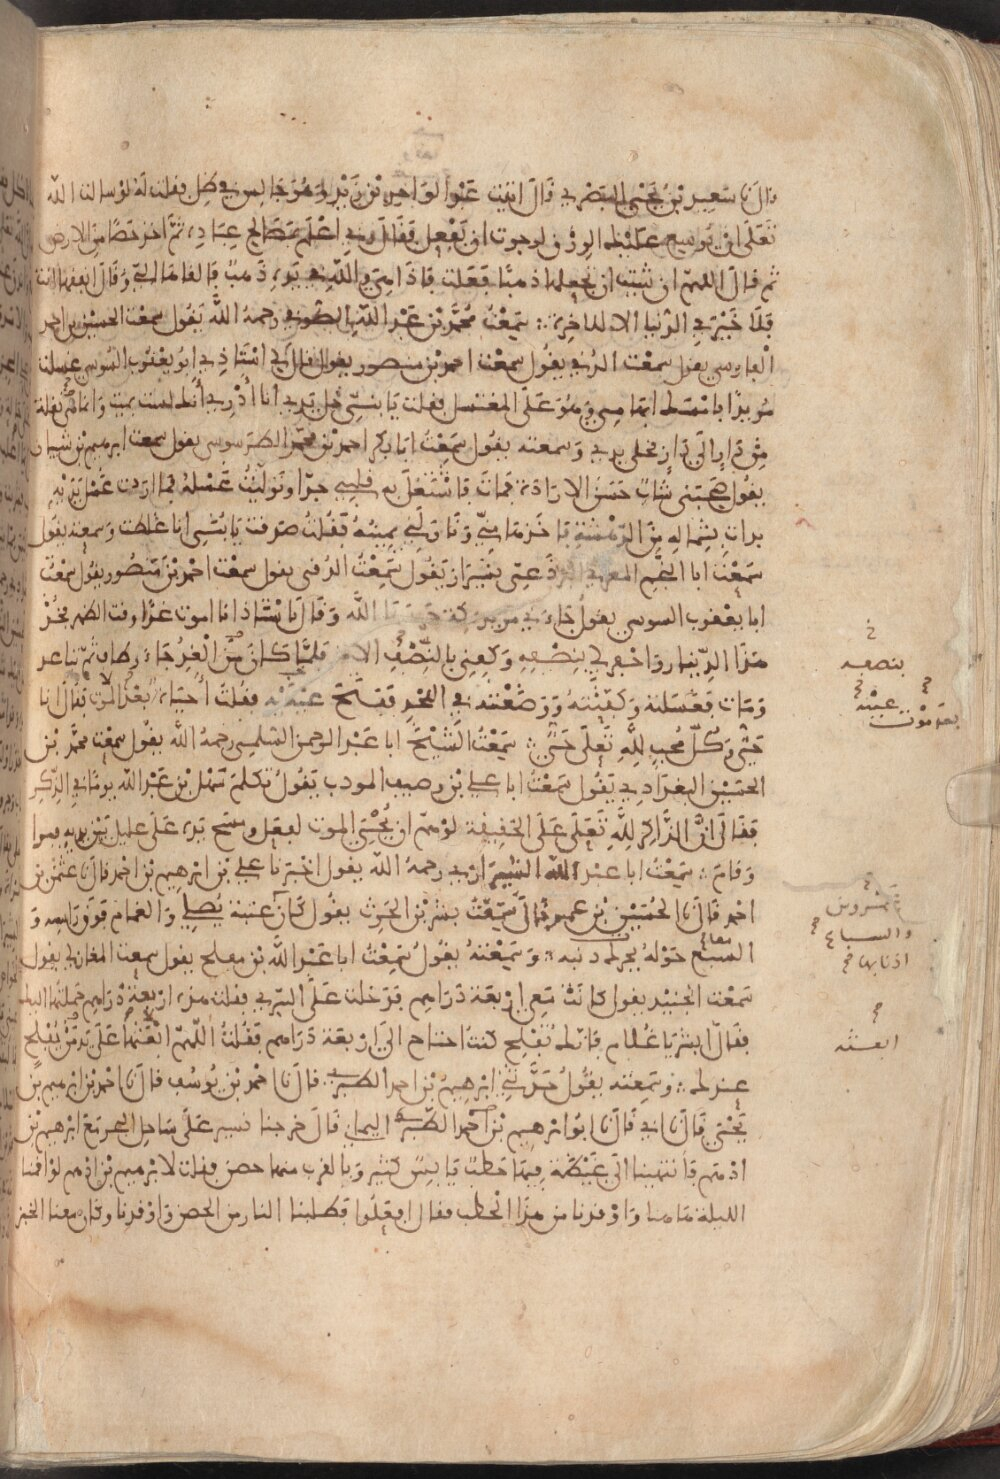 قال نا سعيد بن يحيى البصري قال اتيت عبد الواحد بن زيد وهو جالس في ظل فقلت له لو سالت الله
تعلى ان يوسع عليك الرزق لرجوت ان يفعل فقال ربي اعلم بمصالح عباده ثم اخذ حصا من الارض
ثم قال اللهم ان شئت ان تجعلها ذهبا فعلت فاذا هي والله في يده ذهب فالقاها الي وقال انفقها انت
فلا خير في الدنيا الا للاخرة سمعت محمد بن عبد الله الصوفي رحمه الله يقول سمعت الحسين بن احمد
الفارسي يقول سمعت الرقي يقول سمعت احمد بن منصور يقول قال لي استاذي ابو يعقوب السوسي غسلت
مريدا فامسك ابهامي وهو على المغتسل فقلت يا بني خل يدي انا ادري انك لست بميت وانما هي نقلة
من دار الى دار فخلى يدي وسمعته يقول سمعت ابا بكر احمد بن محمد الطرسوسي يقول سمعت ابرهيم بن شيبان
يقول صحبني شاب حسن الارادة فمات فاشتغل به قلبي جدا وتوليت غسله فلما اردت غسل يديه
بدات بشماله من الدهشة فاخذها مني وناولني يمينه فقلت صدقت يا بني انا غلطت وسمعته يقول
سمعت ابا النجم المقرئ البرذعي بشيراز يقول سمعت الرقي يقول سمعت احمد بن منصور يقول سمعت
ابا يعقوب السوسي يقول جاءني مريد بمكة حرسها الله وقال يا استاذ انا اموت غدا وقت الظهر فخذ
هذا الدينار واحفر لي بنصفه وكفني بالنصف الاخر فلما كان من الغد جاء وطاف ثم تباعد
ومات فغسلته وكفنته ووضعته في اللحد ففتح عينيه فقلت أحياة بعد الموت فقال انا
حي وكل محب لله تعلى حي سمعت الشيخ ابا عبد الرحمن السلمي رحمه الله يقول سمعت محمد بن
الحسين البغدادي يقول سمعت ابا علي بن وصيف المودب يقول تكلم سهل بن عبد الله يوما في الذكر
فقال ان الذاكر لله تعلى على الحقيقة لو هم ان يحيي الموتى لفعل ومسح يده على عليل بين يديه فبرا
وقام سمعت ابا عبد الله الشيرازي رحمه الله يقول اخبرنا علي بن ابرهيم بن احمد قال نا عثمن بن
احمد قال نا الحسين بن عمرو قال سمعت بشر بن الحرث يقول كان عتبة يصلي والغمام فوق راسه و
السباع حوله تحرك ذنبه وسمعته يقول سمعت ابا عبد الله بن مفلح يقول سمعت المغازلي يقول
سمعت الجنيد يقول كانت معي اربعة دراهم فدخلت على السري فقلت هذه اربعة دراهم حملتها اليك
فقال ابشر يا غلام فانك تفلح كنت احتاج الى اربعة دراهم فقلت اللهم ابعثها على يد من يفلح
عندك وسمعته يقول حدثني ابرهيم بن احمد الطبري قال نا احمد بن يوسف قال نا احمد بن ابرهيم بن
يحيى قال نا ابي قال نا ابو ابرهيم بن احمد الطبري اليماني قال خرجنا نسير على ساحل البحر مع ابرهيم بن
ادهم فانتهينا الى غيضة فيها حطب يابس كثير وبالقرب منها حصن فقلت لابرهيم بن ادهم لو اقمنا
الليلة هاهنا واوقدنا من هذا الحطب فقال افعلوا فطلبنا النار من الحصن واوقدنا وكان معنا الخبز
بنصفه
عينه
بعد موت
والسباع
اذنابها
ابعثه